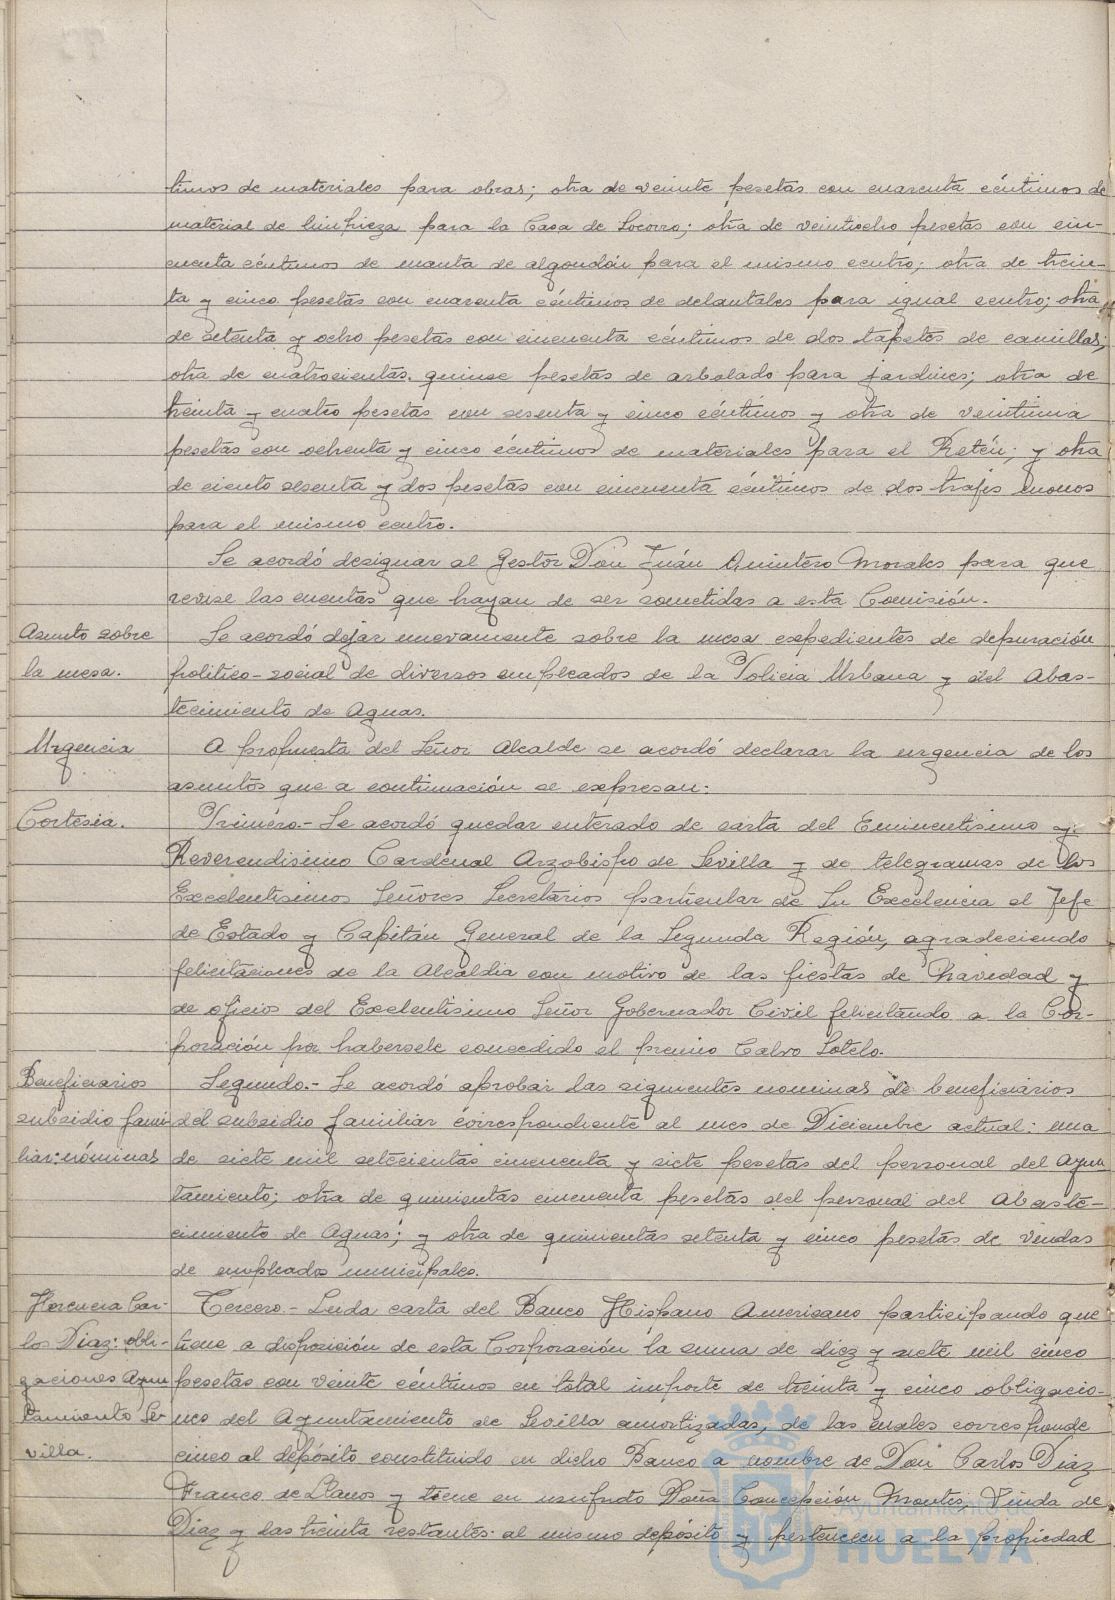 timos de materiales para obras; otra de veinte pesetas con cuarenta céntimos de
material de limpieza para la Casa de Socorro; otra de veintiocho pesetas con cin-
cuenta céntimos de manta de algondón para el mismo centro; otra de trein-
ta y cinco pesetas con cuarenta céntimos de delantales para igual centro; otra
de setenta y ocho pesetas con cincuenta céntimos de dos tapetes de camillas;
otra de cuatrocientas quince pesetas de arbolado para jardines; otra de
treinta y cuatro pesetas con sesenta y cinco céntimos y otra de veintiuna
pesetas con ochenta y cinco céntimos de materiales para el Retén; y otra
de ciento sesenta y dos pesetas con cincuenta céntimos de dos trajes monos
para el mismo centro.
Se acordó designar al Gestor Don Juán Quintero Morales para que
revise las cuentas que hayan de ser sometidas a esta Comisión.
Asunto sobre
la mesa.
Se acordó dejar nuevamente sobre la mesa expedientes de depuración
politico-social de diversos empleados de la Policia Urbana y del Abas-
tecimiento de Aguas.
Urgencia
A propuesta del Señor Alcalde se acordó declarar la urgencia de los
asuntos que a continuación se expresan:
Cortesia.
Primero.- Se acordó quedar enterado de carta del Eminentisimo y
Reverendisimo Cardenal Arzobispo de Sevilla y de telegramas de los
Excelentisimos Señores Secretarios particular de Su Excelencia el Jefe
de Estado y Capitán General de la Segunda Región, agradeciendo
felicitaciones de la Alcaldia con motivo de las fiestas de Navidad y
de oficios del Excelentisimo Señor Gobernador Civil felicitando a la Cor-
poración por habersele concedido el premio Calvo Sotelo.
Beneficiarios
subsidio fami-
liar: nóminas
Segundo.- Se acordó aprobar las siguientes nominas de beneficiarios
del subsidio familiar correspondiente al mes de Diciembre actual: una
de siete mil setecientas cincuenta y siete pesetas del personal del Ayun
tamiento; otra de quinientas cincuenta pesetas del personal del Abaste-
cimiento de Aguas; y otra de quinientas setenta y cinco pesetas de viudas
de empleados municipales.
Herencia Car-
los Diaz: obli-
gaciones Ayun
tamiento Se-
villa.
Tercero.- Leida carta del Banco Hispano Americano participando que
tiene a disposición de esta Corporación la suma de diez y siete mil cinco
pesetas con veinte céntimos en total importe de treinta y cinco obligacio-
nes del Ayuntamiento de Sevilla amortizadas, de las cuales corresponde
cinco al depósito constituido en dicho Banco a nombre de Don Carlos Diaz
Franco de Llanos y tiene en usufruto Doña Concepción Montes, Viuda de
Diaz y las treinta restantes al mismo depósito y pertenecen a la propiedad
Ayuntamiento de
HUELVA